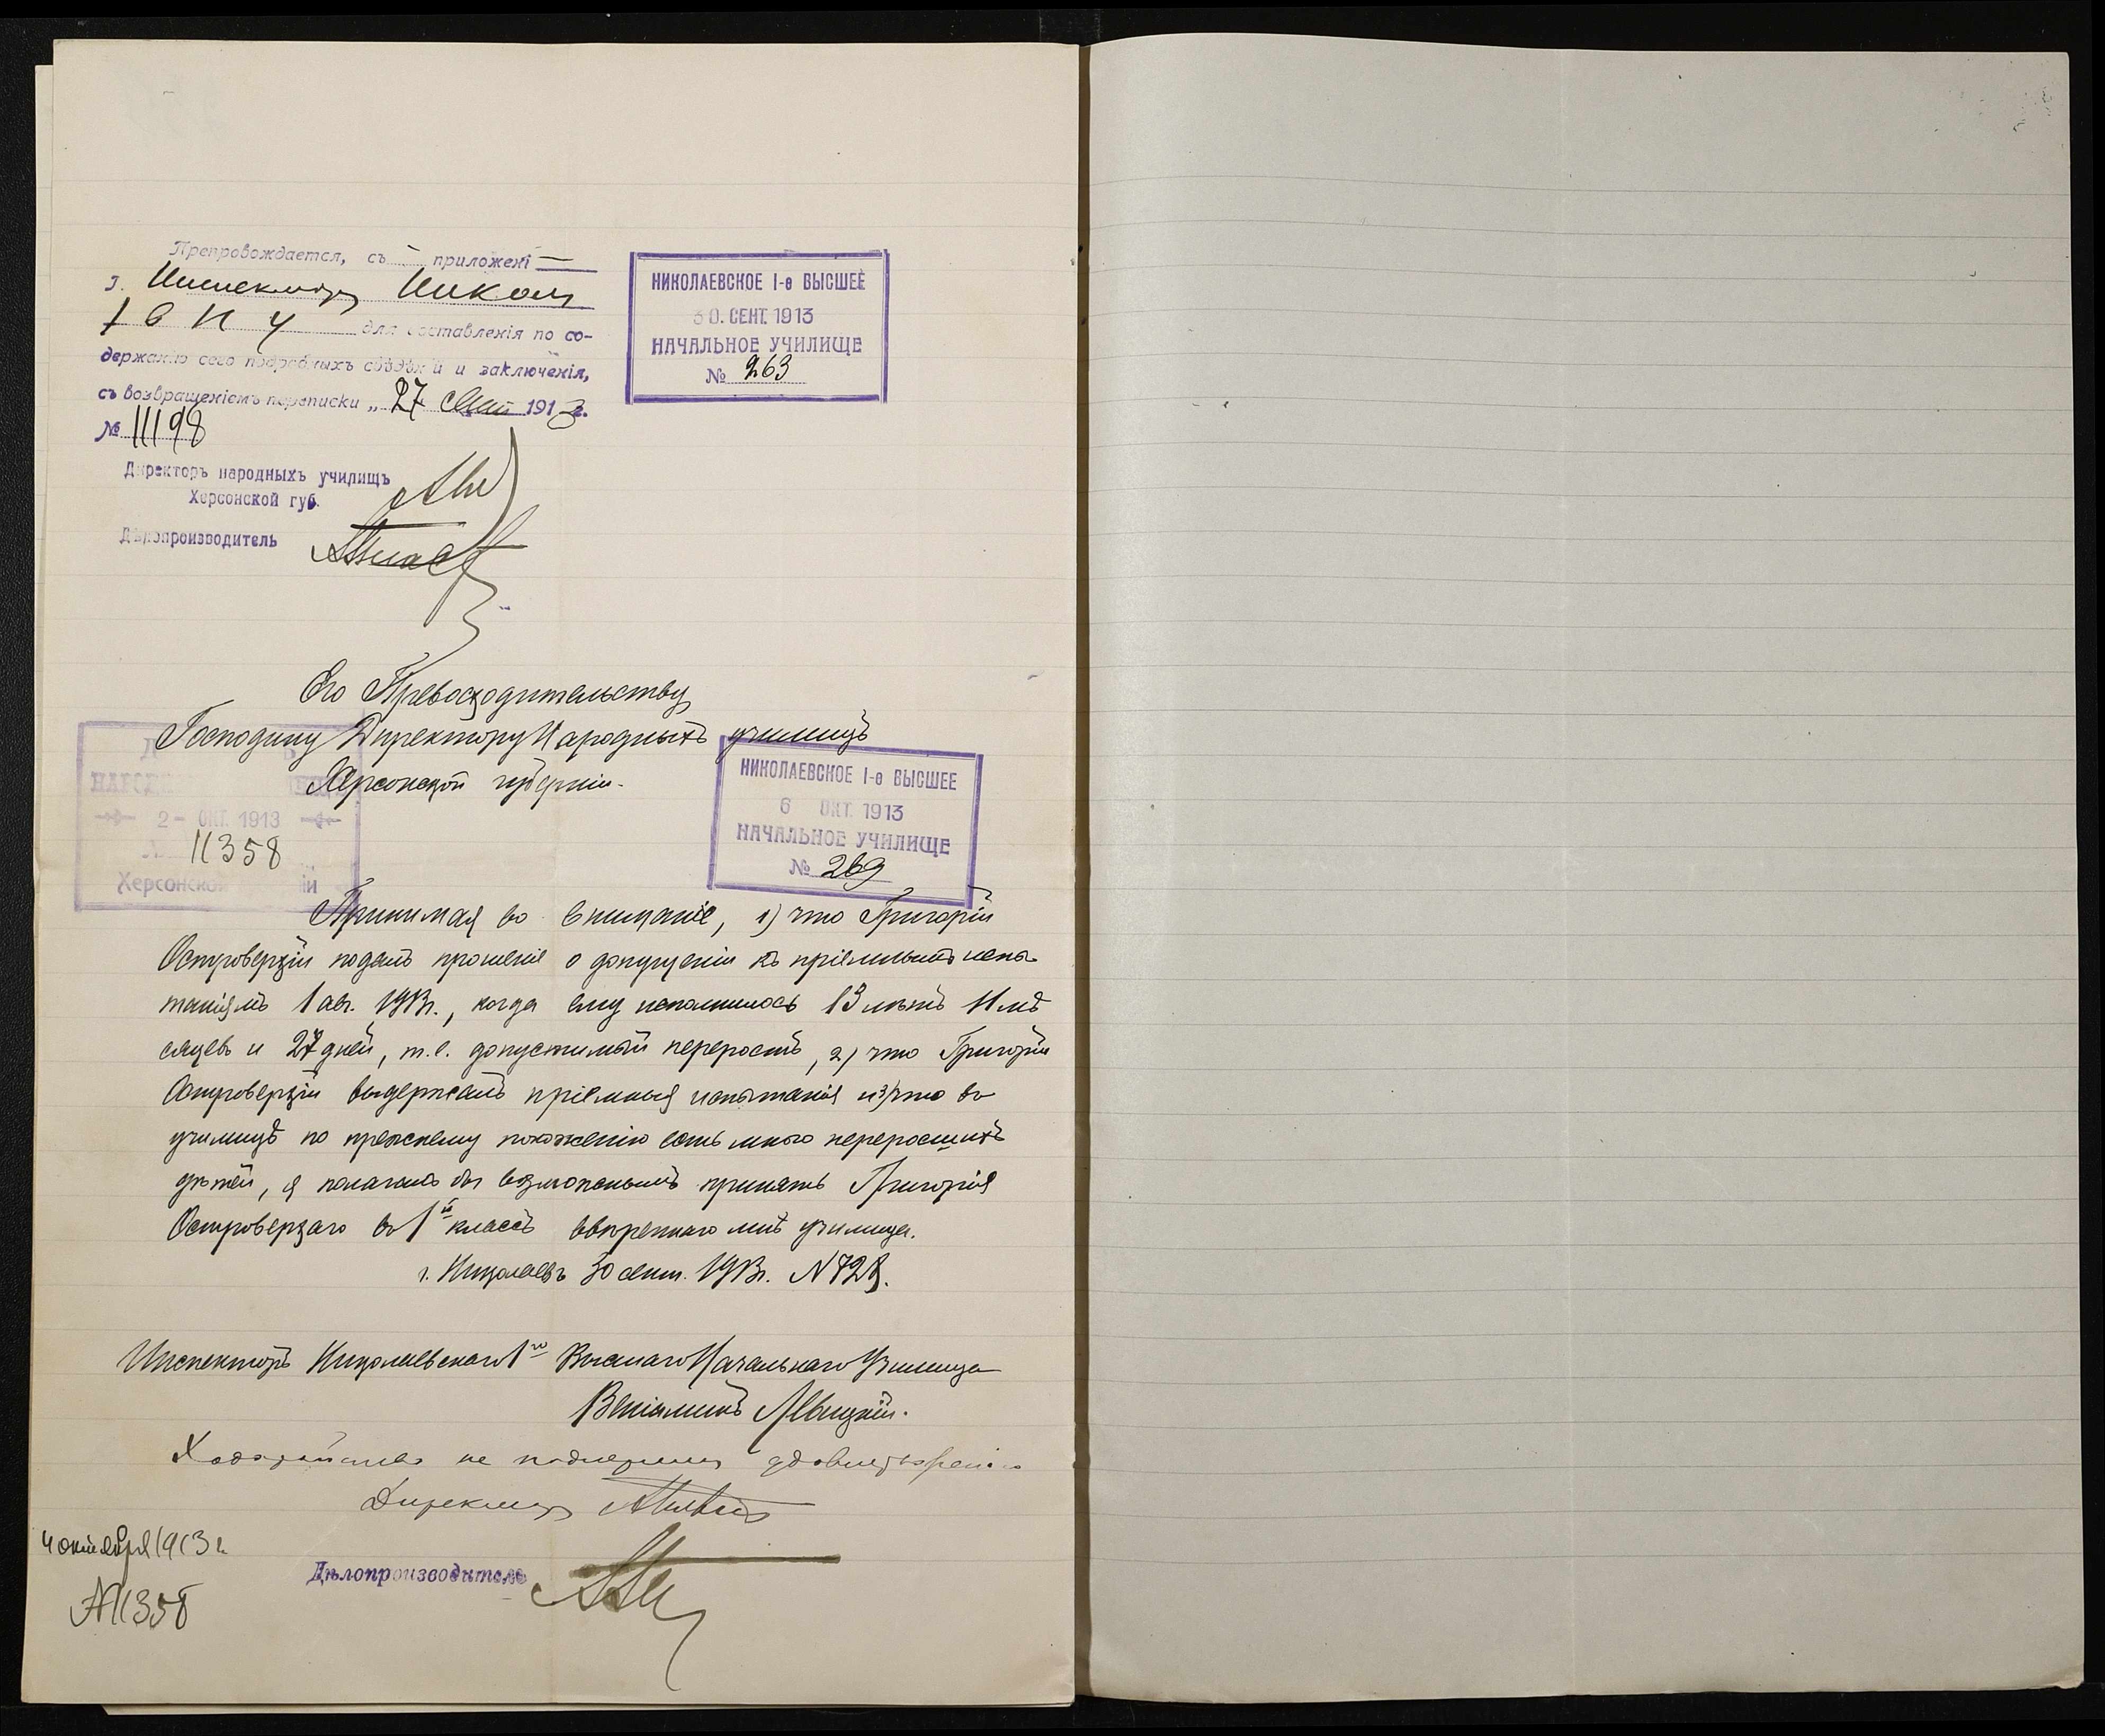 Препровождается, съ приложені
г. Инспектору Никол
1 В Н У для составленія по со-
держанію сего подробныхъ свѣдѣній и заключенія,
съ возвращеніемъ переписки „27 сент 1913 г.
№ 11198
Директоръ народныхъ училищъ
Херсонской губ.
Дѣлопроизводитель
НИКОЛАЕВСКОЕ I-е ВЫСШЕЕ
30. СЕНТ. 1913
НАЧАЛЬНОЕ УЧИЛИЩЕ
№ 263
Его Превосходительству
Господину Директору Народныхъ училищъ
Херсонской губерніи.
2 - ОКТ. 1913
11358
Херсонской
НИКОЛАЕВСКОЕ I-е ВЫСШЕЕ
6 ОКТ. 1913
НАЧАЛЬНОЕ УЧИЛИЩЕ
№ 269
Принимая во вниманіе, 1) что Григорій
Островерхій подалъ прошеніе о допущеніи къ пріемнымъ испы-
таніямъ 1 авг. 1913 г., когда ему исполнилось 13 лѣтъ 11 мѣ
сяцевъ и 27 дней, т.е. допустимый переростъ, 2) что Григорій
Островерхій выдержалъ пріемныя испытанія и 3) что въ
училищѣ по прежнему положенію есть много переросшихъ
дѣтей, я полагалъ бы возможнымъ принять Григорія
Островерхаго въ 1й классъ ввѣреннаго мнѣ училища.
г. Николаевъ 30 сент. 1913 г. N 728.
Инспекторъ Николаевскаго 1го Высшаго Начальнаго Училища
Веніаминъ Левицкій.
Ходатайство не подлежитъ удовлетворенію
Директоръ
4 октября 1913 г.
N 11358
Дѣлопроизводитель